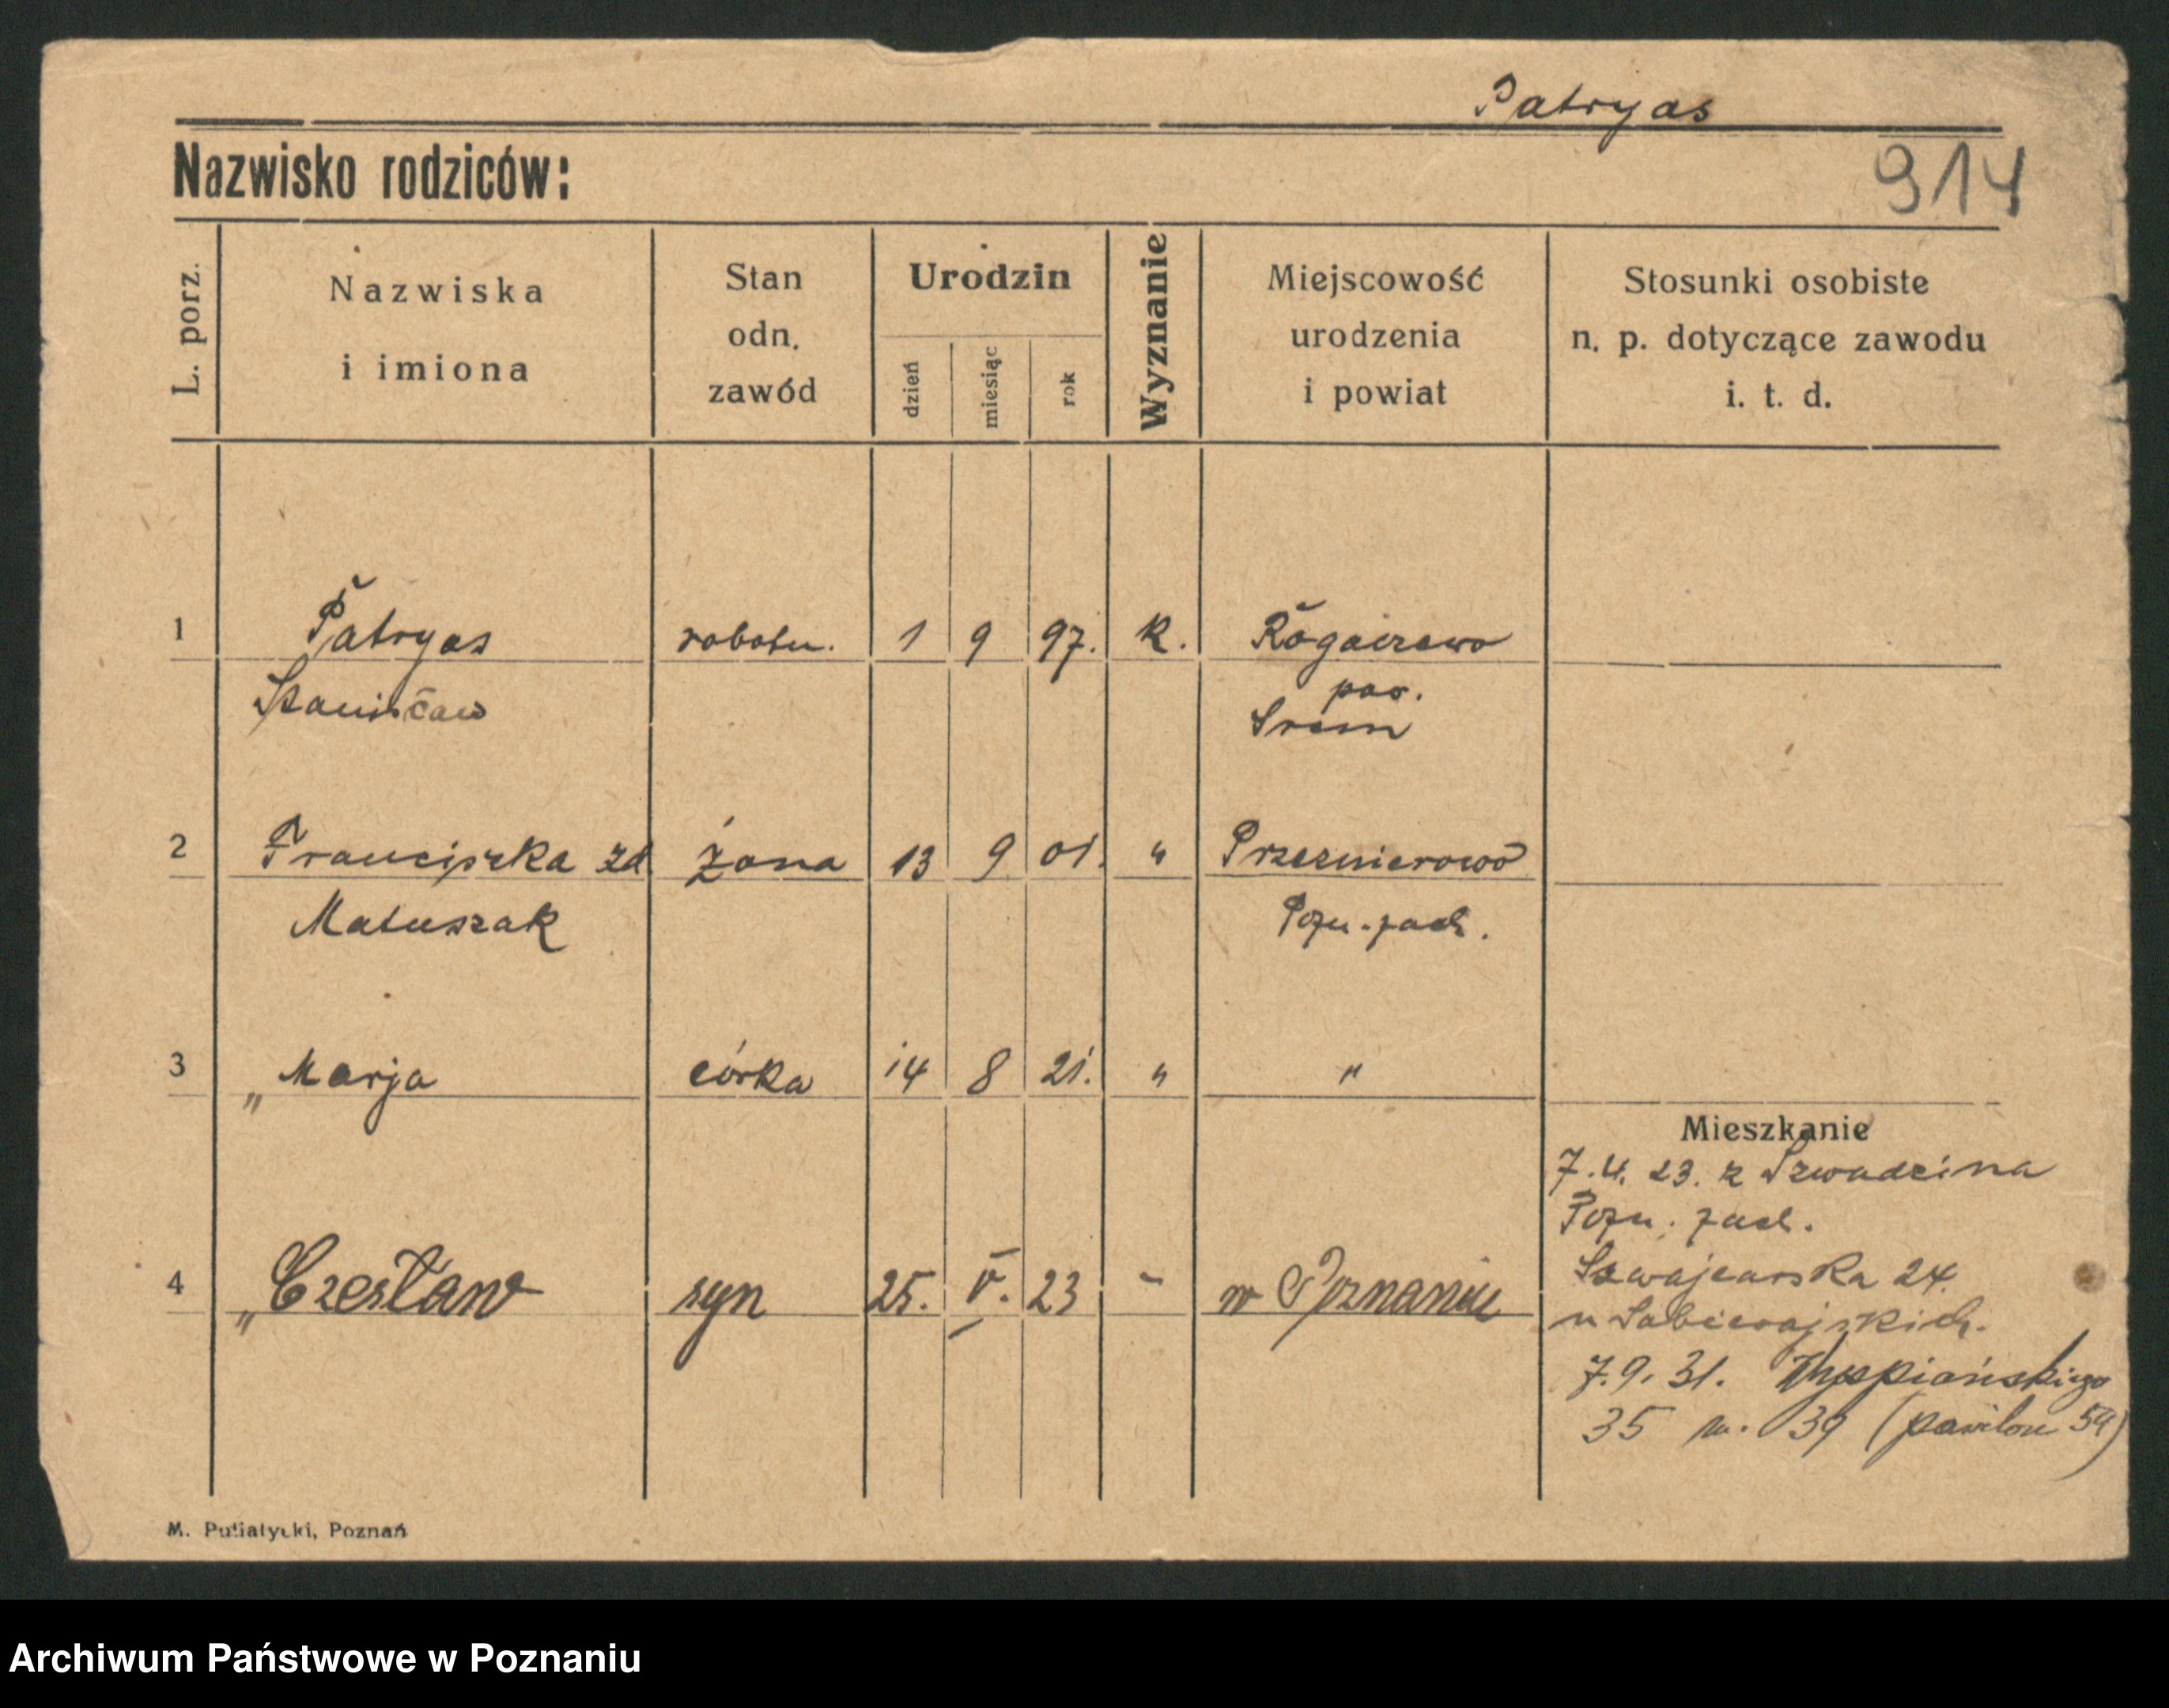 Patryas
Nazwisko rodziców:
914
L. porz.
Nazwiska
i imiona
Stan
odn.
zawód
Urodzin
dzień
miesiąc
rok
Wyznanie
Miejscowość
urodzenia
i powiat
Stosunki osobiste
n. p. dotyczące zawodu
i. t. d.
1 Patryas robotn. 1 9 97. k. Rogaczewo
Stanisław
pow.
Srem
2 Franciszka zd żona 13 9 01. " Przezmierowo
Matuszak Pozn. zach.
3 " Marja córka 14 8 21. " "
Mieszkanie
7.4. 23. z
Pozn. zach.
4 " Czesław syn 25. V. 23 " w Poznaniu
Szwajcarska 24.
u
7.9. 31. Wyspiańskiego
35 m. 39 (pawilon 54)
M. Putiatycki, Poznań
Archiwum Państwowe w Poznaniu